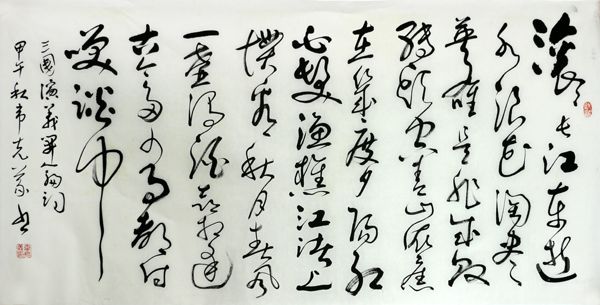 滚滚长江东逝
水浪花淘尽
英雄是非成败
转头空青山依旧
在几度夕阳红
白髮渔樵江渚上
惯看秋月春风
一壶浊酒喜相逢
古今多少事都付
笑谈中
三國演義開篇词
甲午秋韦克书